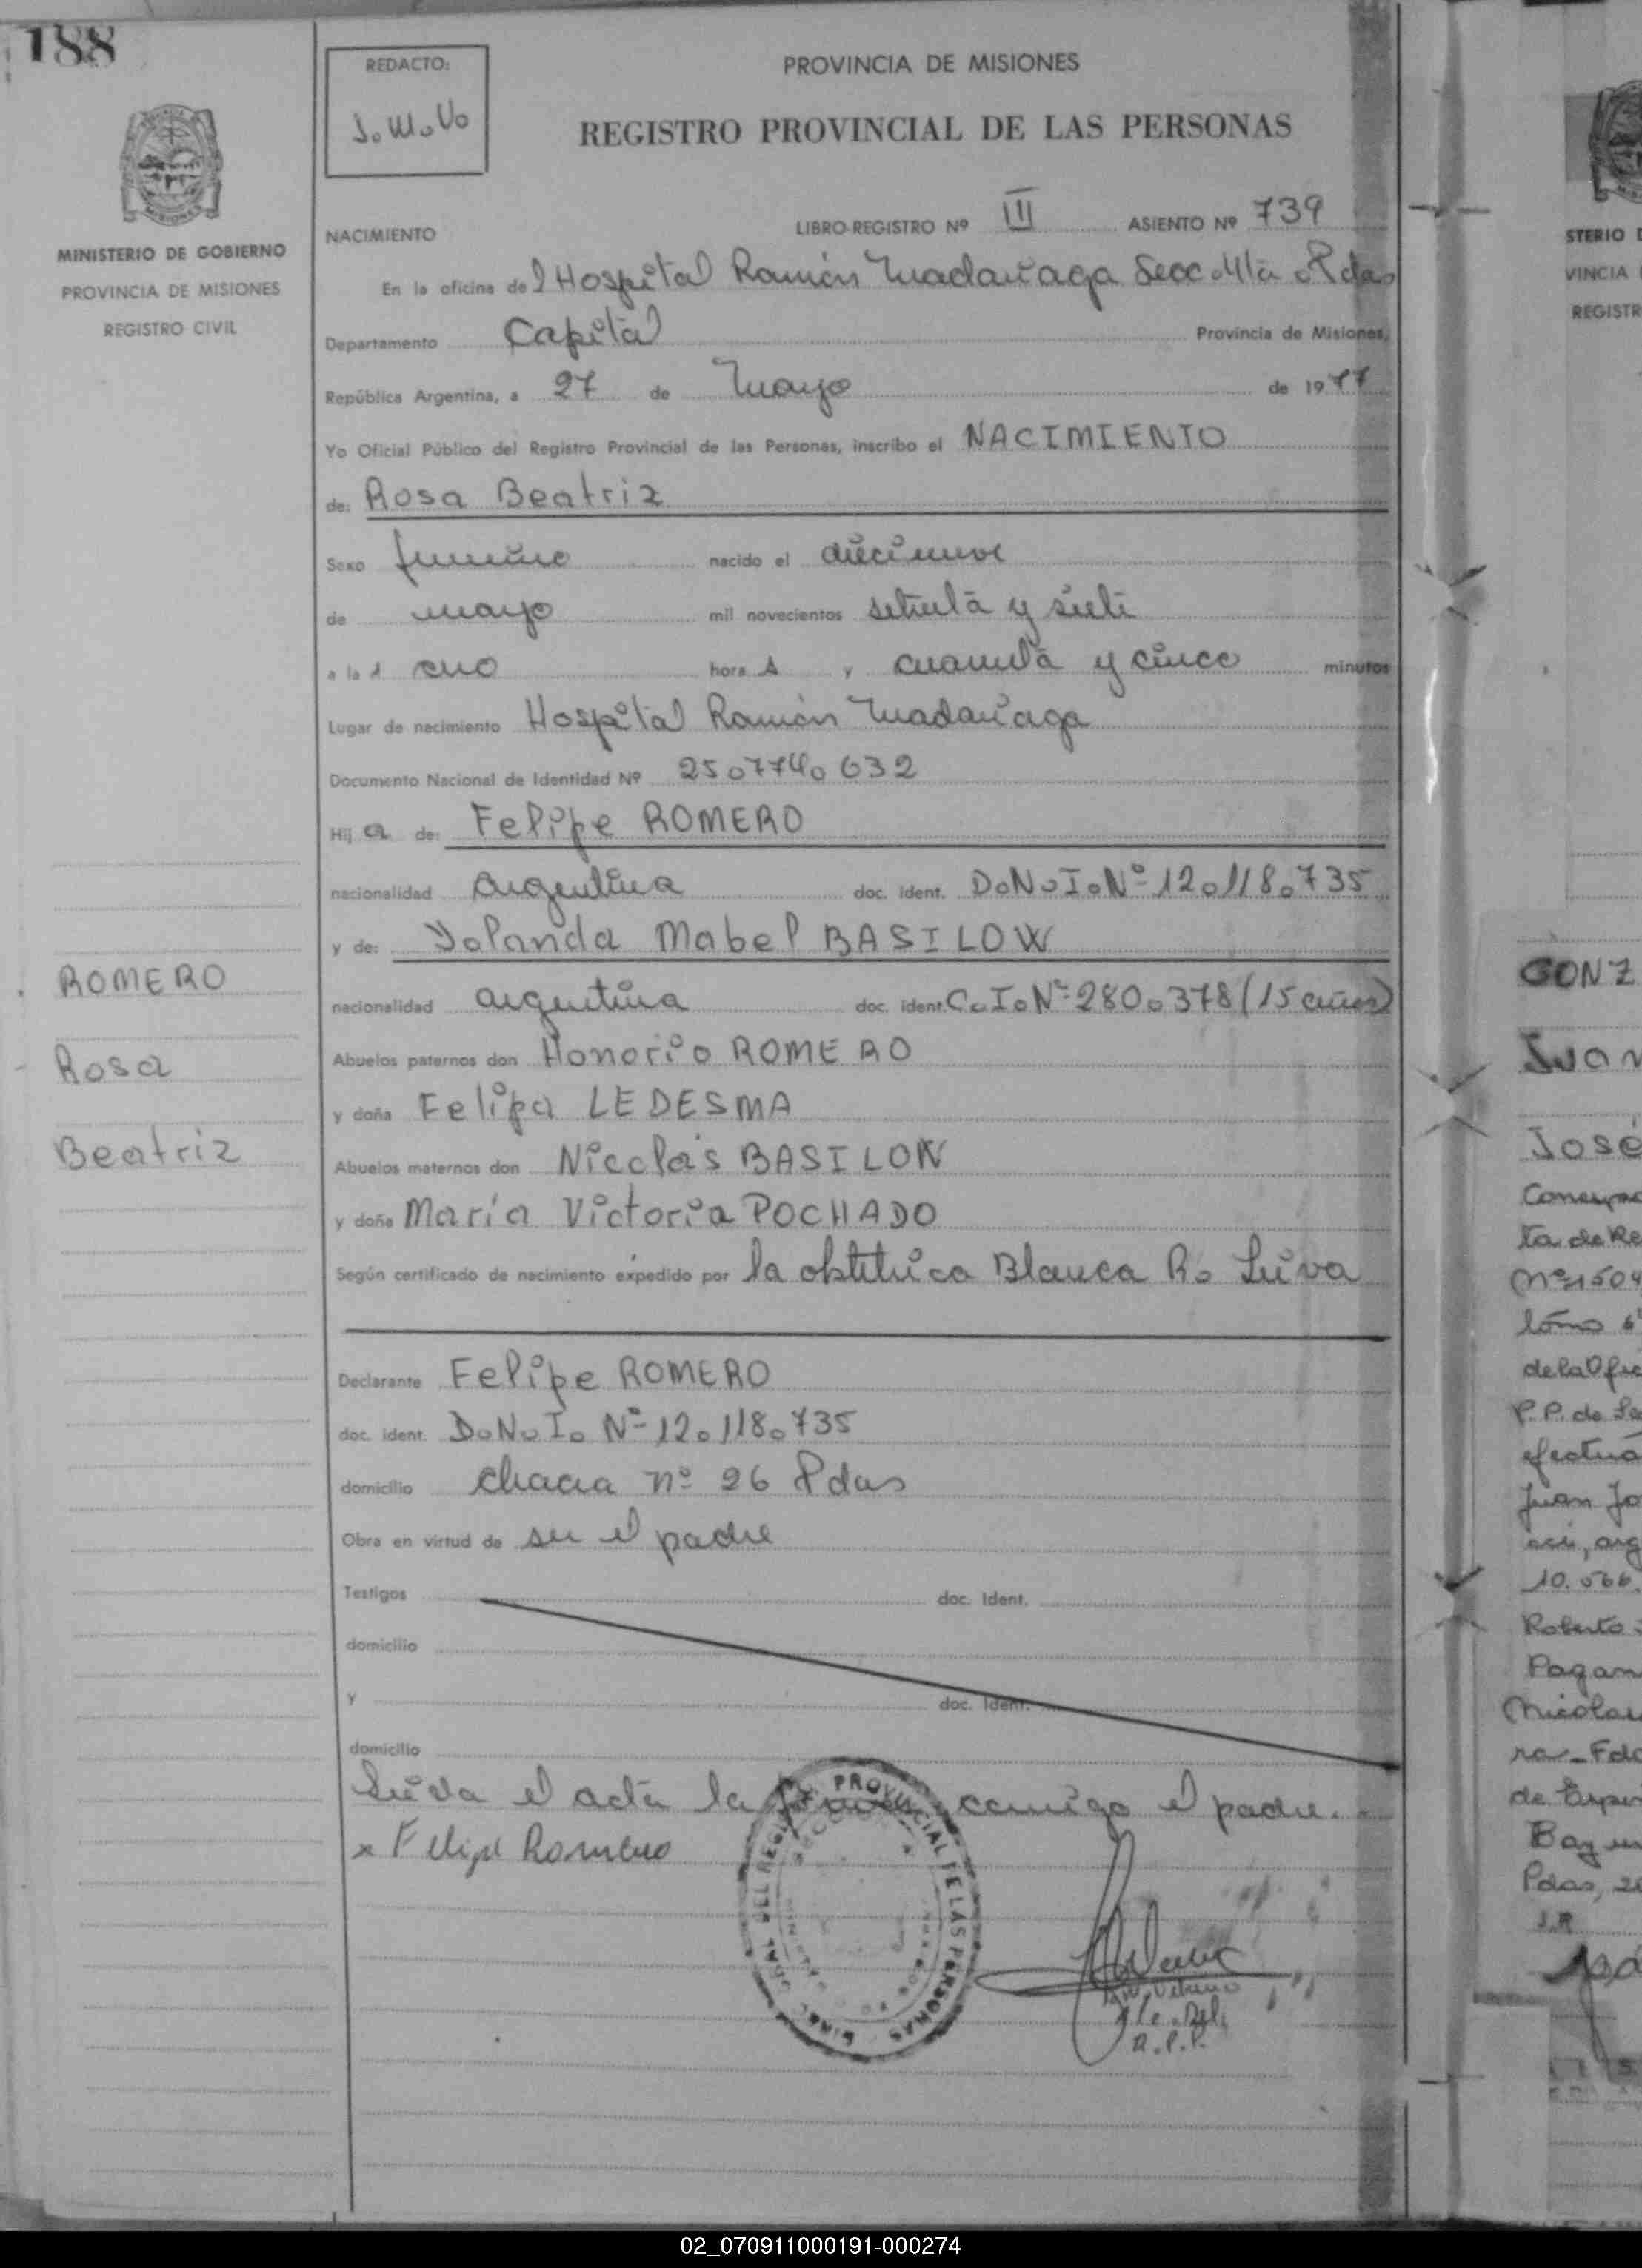 188
MINISTERIO DE GOBIERNO
PROVINCIA DE MISIONES
REGISTRO CIVIL
ROMERO
Rosa
Beatriz
REDACTO:
J.M.V.
PROVINCIA DE MISIONES
REGISTRO PROVINCIAL DE LAS PERSONAS
NACIMIENTO LIBRO-REGISTRO Nº III ASIENTO Nº 739
En la oficina del Hospital Ramón Madariaga Secc. 4ta. Pdas
Departamento Capital Provincia de Misiones,
República Argentina, a 27 de Mayo de 1977
Yo Oficial Público del Registro Provincial de las Personas, inscribo el NACIMIENTO
de: Rosa Beatriz
Sexo femenino nacido el diecinueve
de mayo mil novecientos setenta y siete
a la s uno hora s y cuarenta y cinco minutos
Lugar de nacimiento Hospital Ramón Madariaga
Documento Nacional de Identidad Nº 25.774.632
Hij a de: Felipe ROMERO
nacionalidad Argentina doc. ident. D.N.I.Nº 12.118.735
y de: Yolanda Mabel BASILOW
nacionalidad argentina doc. ident. C.I.Nº 280.378 (15 años)
Abuelos paternos don Honorio ROMERO
y doña Felipa LEDESMA
Abuelos maternos don Nicolás BASILOW
y doña María Victoria POCHADO
Según certificado de nacimiento expedido por la obstetrica Blanca R. Leiva
Declarante Felipe ROMERO
doc. ident. D.N.I. Nº 12.118.735
domicilio chacra nº 26 Pdas
Obra en virtud de ser el padre
Testigos doc. Ident.
domicilio
y doc. Ident.
domicilio
Leida el acta la firma conmigo el padre.
x Felipe Romero
DEL REGISTRO PROVINCIAL DE LAS PERSONAS
R.P.P.
STERIO D
VINCIA
REGISTR
GONZ
Juan
José
ta de Re
Nº 1504
tomo 6
de la Ofic
P.P. de
efectua
Juan Jo
10.566.
Roberto
Pagan
Nicolas
Pdas, 2
J.R
02_070911000191-000274